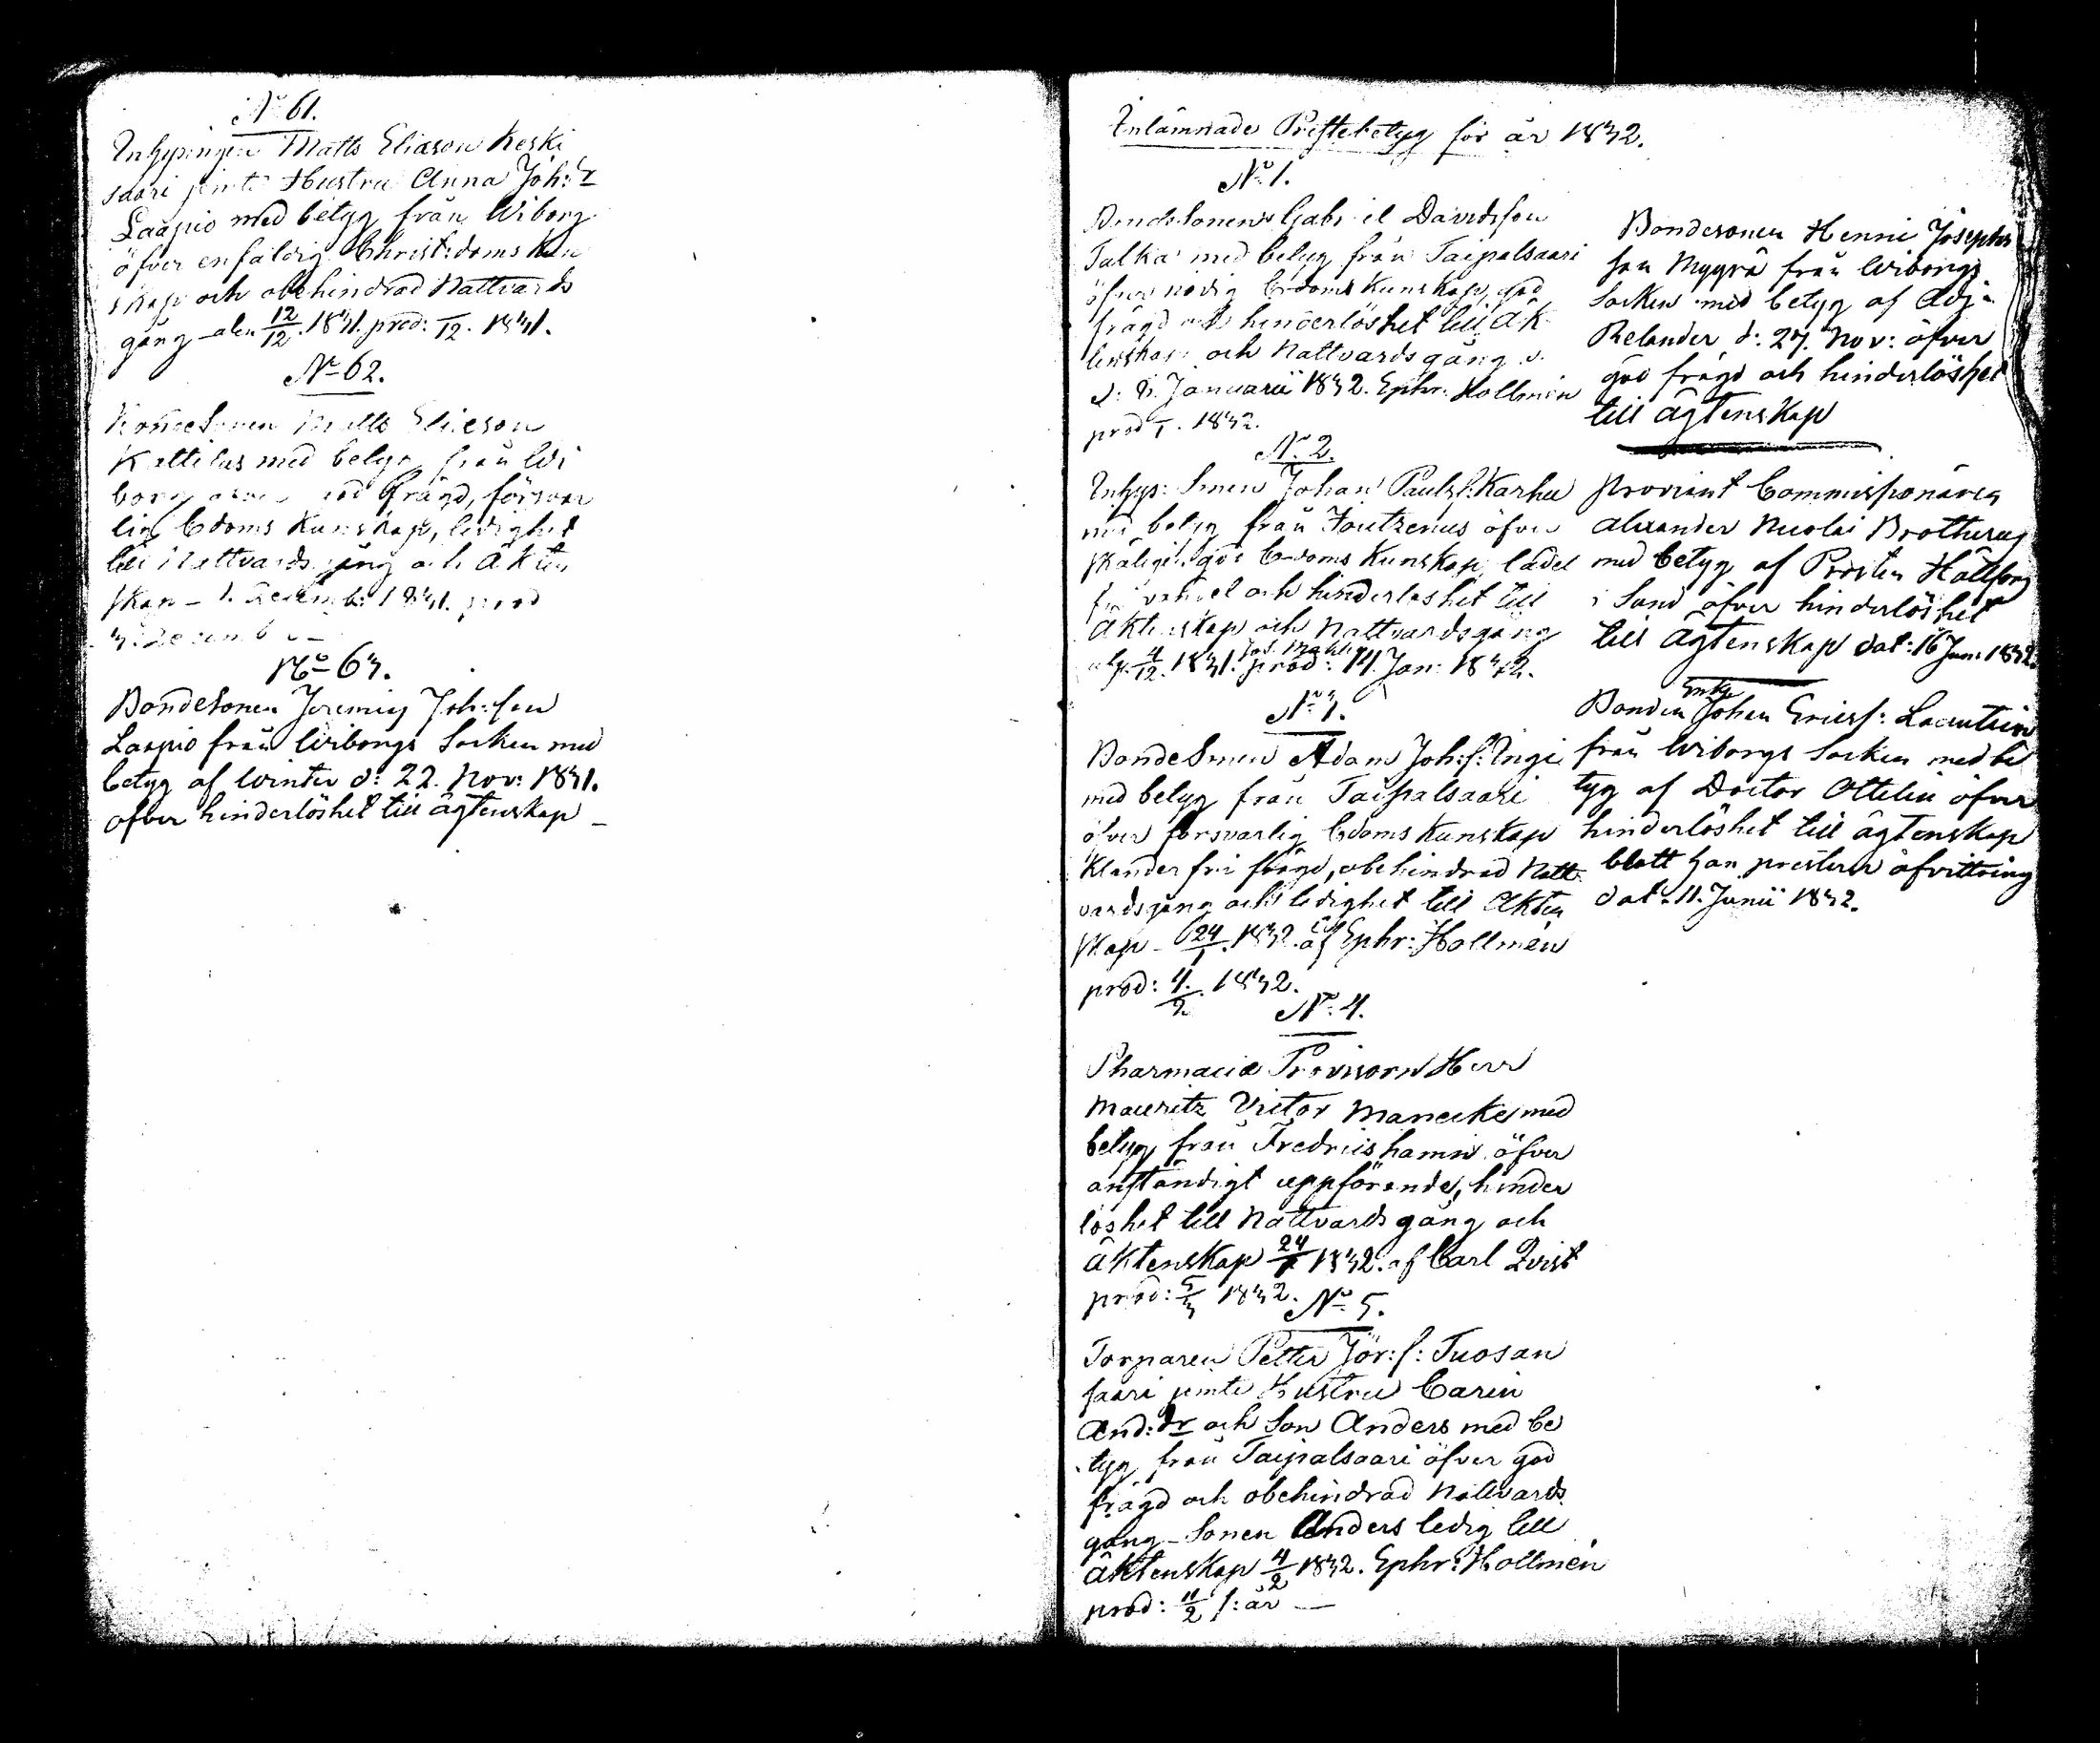 No 61.
Inhysingen Matts Eliason Keski
saari jemte Hustru Anna Joh: dr
Laapio med betyg från Wiborg
öfver enfaldig Christ:doms kun
skap och obehindrad Nattvards
gång den 12/12. 1831. prod: /12. 1831.
No 62.
BondeSonen Matts Eliason
Kattilus med betyg från Wi
borg öfver god frägd, försvar
lig Cdoms Kunskap, ledighet
till Nattvardsgång och Äkten
skap – 1. Decemb: 1831. prod
3. Decemb
No 63.
BondeSonen Jeremias Joh:son
Laapio från Wiborgs Socken med
betyg af Winter d: 22. Nov: 1831.
öfver hinderlöshet till ägtenskap –
Inlämnade Prestebetyg för år 1832.
No 1.
BondeSonen Gabriel Davidsson
Talka med betyg från Taipalsaari
öfver nödig Cdoms Kunskap, god
frägd och hinderlöshet till Äk
tenskap och Nattvardsgång
d: 8. Januarii 1832. Ephr: Hollmén
prod /1. 1832.
No 2.
Inhys: Sonen Johan Pauls s: Karhu
med betyg från Joutzenus öfver
skäligen god Cdoms Kunskap, ladel
fri vandel och hinderlöshet till
Äktenskap och Nattvardsgång
4/12. 1831. prod: 14. Jan: 1832.
No 3.
BondeSonen Adam Joh:s: Ingi
med betyg från Taipalsaari
öfver försvarlig Cdoms Kunskap
Klanderfri frägd, obehindrad Natt
vardsgång och ledighet till Äkten
skap – 24/1. 1832. af Ephr: Hollmén
prod: 4./2. 1832.
No 4.
Pharmaciæ Provisorn Herr
Mauritz Victor Manecke med
betyg från Fredrickshamn öfver
anständigt uppförande, hinder
löshet till Nattvardsgång och
äktenskap 24/1 1832. af Carl Qvist
prod: 5/3 1832.
No 5.
Torparen Petter Jör: s: Tuosan
saari jemte Hustru Carin
And: dr och Son Anders med be
tyg från Taipalsaari öfver god
frägd och obehindrad Nattvards
gång – Sonen Anders ledig till
Äktenskap 4/2 1832. Ephr: Hollmén
prod: 11/2 s: år —
Bondesonen Henric Josephs
son Myyrä från Wiborgs
Socken med betyg af Adj:
Relander d: 27. Nov: öfver
god frägd och hinderlöshet
till ägtenskap
Proviant Commissionären
Alexander Nicolai Brotherus
med betyg af Prosten Hällfors
i Sund öfver hinderlöshet
till Ägtenskap dat: 16 Jan: 1832.
Enkl
Bonden Johan Ericss: Laentein
från Wiborgs Socken med be
tyg af Doctor Ottelin öfver
hinderlöshet till ägtenskap
blott han presterar afvittring
dat: 11. Junii 1832.